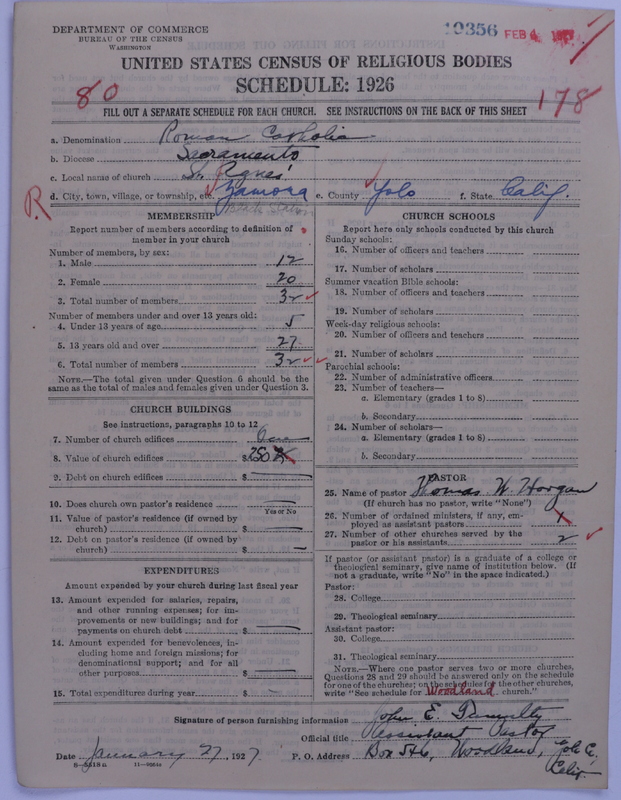 DEPARTMENT OF COMMERCE
BUREAU OF THE CENSUS
WASHINGTON
10356 FEB 4 1927
UNITED STATES CENSUS OF RELIGIOUS BODIES
SCHEDULE: 1926
80
178
FILL OUT A SEPARATE SCHEDULE FOR EACH CHURCH. SEE INSTRUCTIONS ON THE BACK OF THIS SHEET
a. Denomination Roman Catholic
b. Diocese Sacramento
c. Local name of church St. Agnes'
R
d. City, town, village, or township, etc. Zamora e. County Yolo f. State Calif.
MEMBERSHIP
Report number of members according to definition of
member in your church
Number of members, by sex:
1. Male 12
2. Female 20
3. Total number of members 32
Number of members under and over 13 years old:
4. Under 13 years of age 5
5. 13 years old and over 27
6. Total number of members 32
NOTE.—The total given under Question 6 should be the
same as the total of males and females given under Question 3.
CHURCH BUILDINGS
See instructions, paragraphs 10 to 12
7. Number of church edifices One
8. Value of church edifices $250
9. Debt on church edifices $
10. Does church own pastor's residence
Yes or No
11. Value of pastor's residence (if owned by
church) $
12. Debt on pastor's residence (if owned by
church) $
EXPENDITURES
Amount expended by your church during last fiscal year
13. Amount expended for salaries, repairs,
and other running expenses; for im-
provements or new buildings; and for
payments on church debt $
14. Amount expended for benevolences, in-
cluding home and foreign missions; for
denominational support; and for all
other purposes $
15. Total expenditures during year $
CHURCH SCHOOLS
Report here only schools conducted by this church
Sunday schools:
16. Number of officers and teachers
17. Number of scholars
Summer vacation Bible schools:
18. Number of officers and teachers
19. Number of scholars
Week-day religious schools:
20. Number of officers and teachers
21. Number of scholars
Parochial schools:
22. Number of administrative officers
23. Number of teachers—
a. Elementary (grades 1 to 8)
b. Secondary
24. Number of scholars—
a. Elementary (grades 1 to 8)
b. Secondary
PASTOR
25. Name of pastor Thomas W. Horgan
(If church has no pastor, write "None")
26. Number of ordained ministers, if any, em-
ployed as assistant pastors 1
27. Number of other churches served by the
pastor or his assistants 2
If pastor (or assistant pastor) is a graduate of a college or
theological seminary, give name of institution below. (If
not a graduate, write "No" in the space indicated.)
Pastor:
28. College
29. Theological seminary
Assistant pastor:
30. College
31. Theological seminary
NOTE.—Where one pastor serves two or more churches,
Questions 28 and 29 should be answered only on the schedule
for one of the churches; on the schedules for the other churches,
write "See schedule for Woodland church."
Signature of person furnishing information John E.
Official title Assistant Pastor
Date January 27, 1927. P. O. Address Box 546, Woodland, Yolo C.,
Calif.